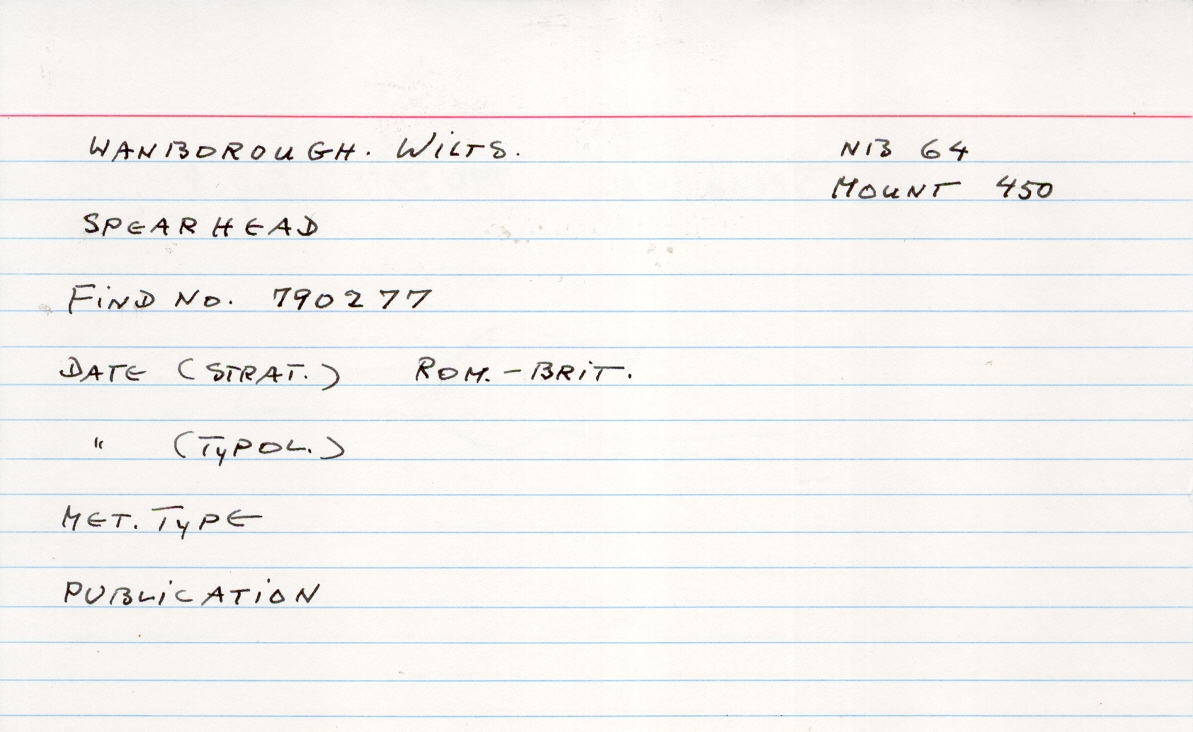 WANBOROUGH. WILTS. NIB 64
MOUNT 450
SPEARHEAD
FIND NO. 790277
DATE (STRAT.) ROM.-BRIT.
" (TYPOL.)
MET. TYPE
PUBLICATION